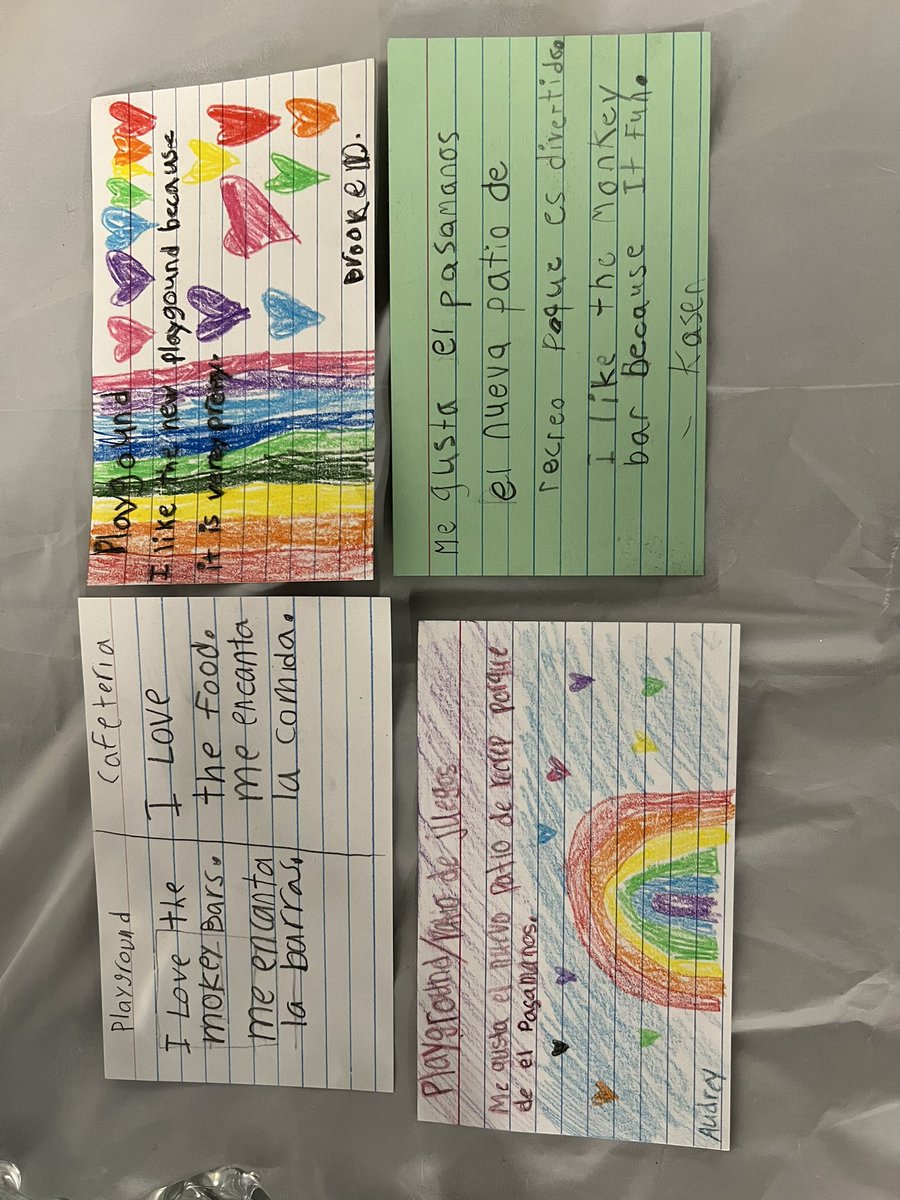 Playground
I Love the
mokey Bars.
me encanta
la barras.
Cafeteria
I Love
the food.
me encanta
la comida.
Playgound
I like the new playgound because
it is verey prety.
Brooke D.
Playground/patio de juegos
Me gusta el nuevo patio de recreo porque
de el Pasamanos.
Audrey
Me gusta el pasamanos
el nueva patio de
recreo poque es divertido.
I like the monkey
bar Because It fun.
- Kasen